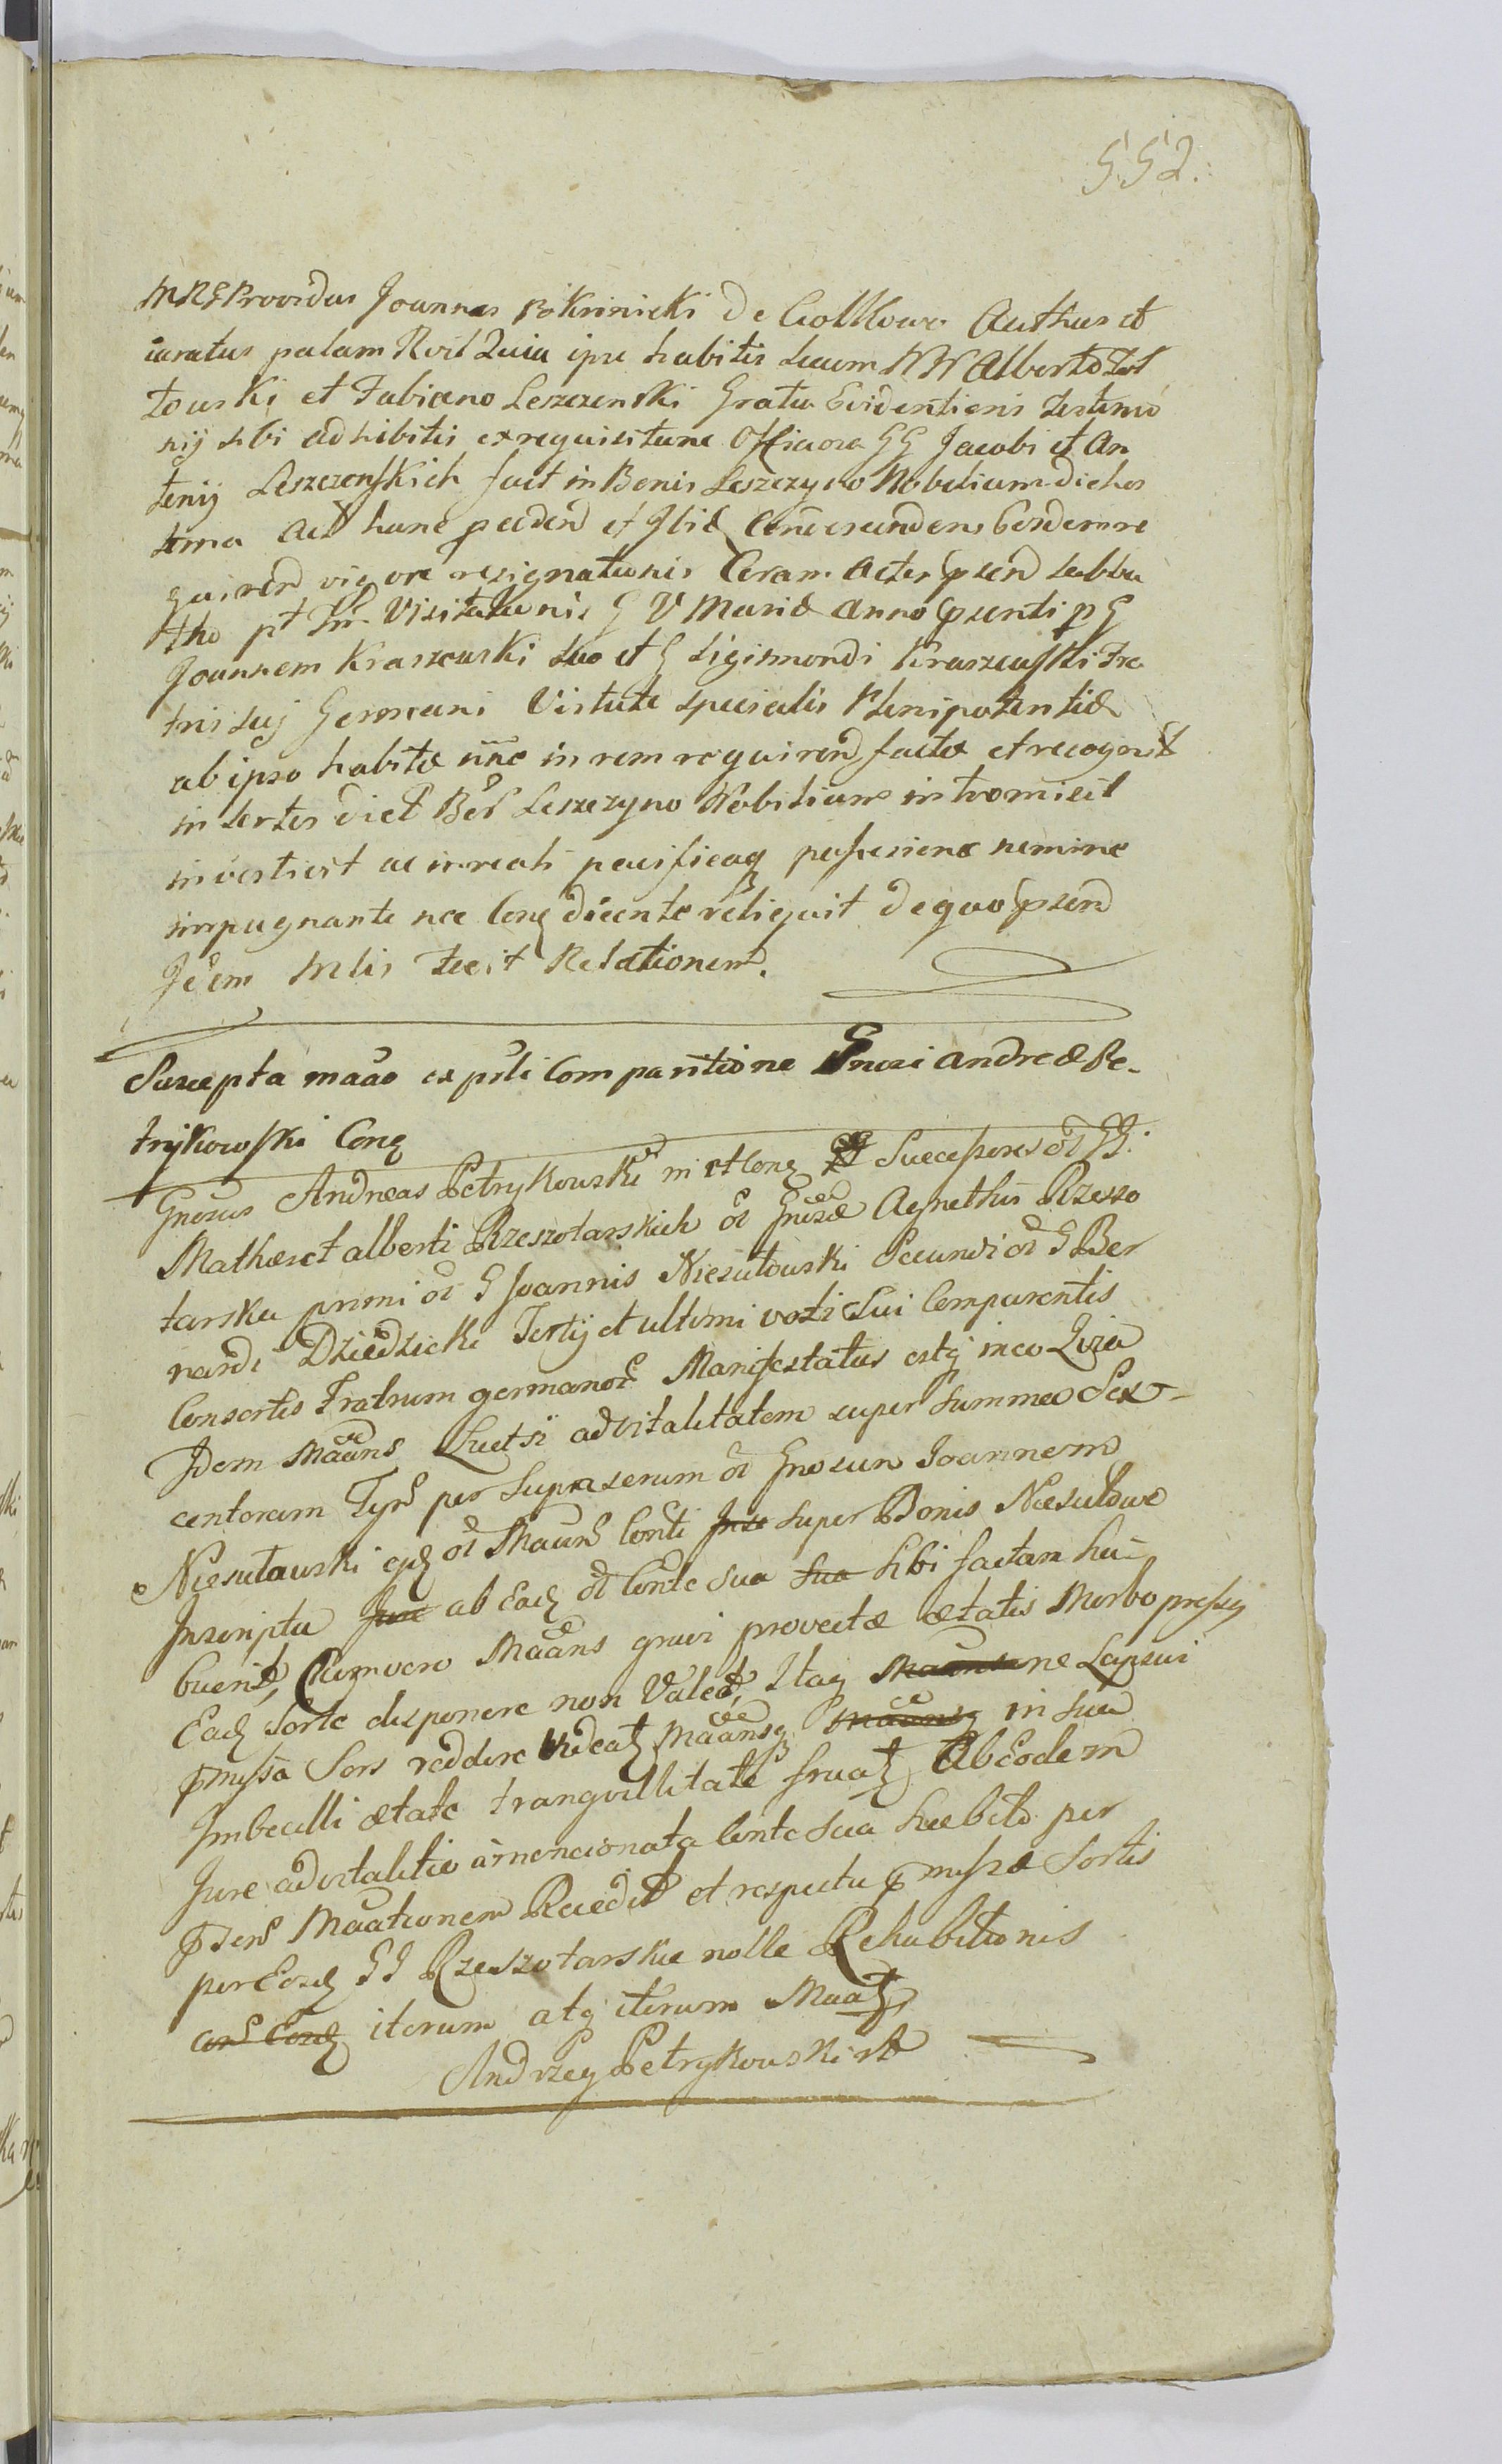 552.
MRG Providus Joannes Krinicki de Gollkowo Authus et
iuratus palam Rvit Quia ipse habitis secum NN Alberto
towski et Fabiano Leszczenski Gratia Evidentioris testimo
nij sibi adhibitis ex requisitione GG Jacobi et An
tonij Leszczenskich fuit in Bonis Leszczyno Nobilium
ad hanc et Ibid
quirend vigore resignationis Coram Actis psend Sabba
tho pt Visitationis G V Mariæ Anno psenti p G
Joannem Kraszewski suo et G Sigismondi Kraszewski Fra
tris suj Germani Virtute specialis Plenipotentiæ
ab ipso habitæ in rem requirend factæ et recognit
in sortes dict Leszczyno Nobilium intromisit
investivit ac in reali pacificaq possessione nemine
impugnante nec Conq dicente reliquit de quo psend
Jdem Mlis Fecit Relationem.
Suscepta maão ex psli Comparitione Gnosi Andreæ Pe-
trykowski Conq
Gnosus Andreas Petrykowski Successores GG.
Mathæi et alberti Rzeszotarskich Gnosæ Agnethis Rzeszo
tarska primi G Joannis Niesułowski Secundi G Ber
nardi Dziedzicki Tertij et ultimi voti Sui Comparentis
Consortis Fratrum germanor Manifestatus estq in eo Quia
Jdem Maans Licet si advitalitatem super Summa Sex-
centorum Tyn per Gnosum Joannem
Niesułowski Consti Jure super Bonis Niesułowo
Inscripta Jure ab Eaq Conte sua sua Sibi factam ha-
buerit, Cum vero Maans gravi provectæ ætatis Morbo pressq
Eaq Sorte disponere non Valeat, Itaq ne Lapsui
pmissa Sors reddere videatq Maansq Maansq in sua
Imbecilli ætate tranquillitate fruatq Ab Eodem
Jure advitalitio amencionata Conte sua habito per
psens Maationem Recedit et respectu pmissæ Sortis
per Eosd GG Rzeszotarskie nolle Rehabitionis
iterum atq iterum Maatq
Andrzey Petrykowski